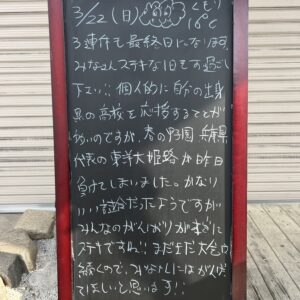 3/22(日) くもり
16℃
3連休も最終日になります
みなさんステキな1日をお過ごし
下さい!! 個人的に自分の出身
県の高校を応援することが
多いのですが、春の野球 兵庫県
代表の東洋大姫路が昨日
負けてしまいました。かなり
いい試合だったようですが
みんなのがんばりが本当に
ステキですね!! まだまだ大会は
続くので、みなさんにはがんばっ
てほしいと思います!!